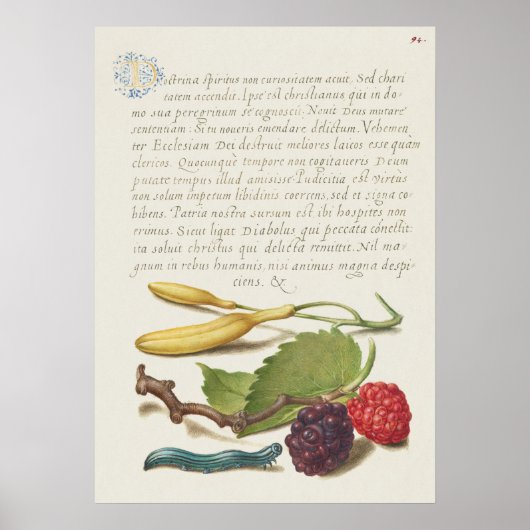 94.
Doctrina spiritus non curiositatem acuit. Sed chari
tatem accendis. Ipse est christianus qui in do=
mo sua peregrinum se cognoscit. Novit Deus mutare
sententiam: Si tu noveris emendare delictum. Vehemen
ter Ecclesiam Dei destruit meliores laicos esse quàm
clericos. Quocunque tempore non cogitaveris Deum
putate tempus illud amisisse. Pudicitia est virtus
non solum impetum libidinis coercens, sed et signa co=
hibens. Patria nostra sursum est ibi hospites non
erimus. Sicut ligat Diabolus qui peccata connectit:
ita soluit christus qui delicta remittit. Nil ma=
gnum in rebus humanis, nisi animus magna despi=
ciens. &